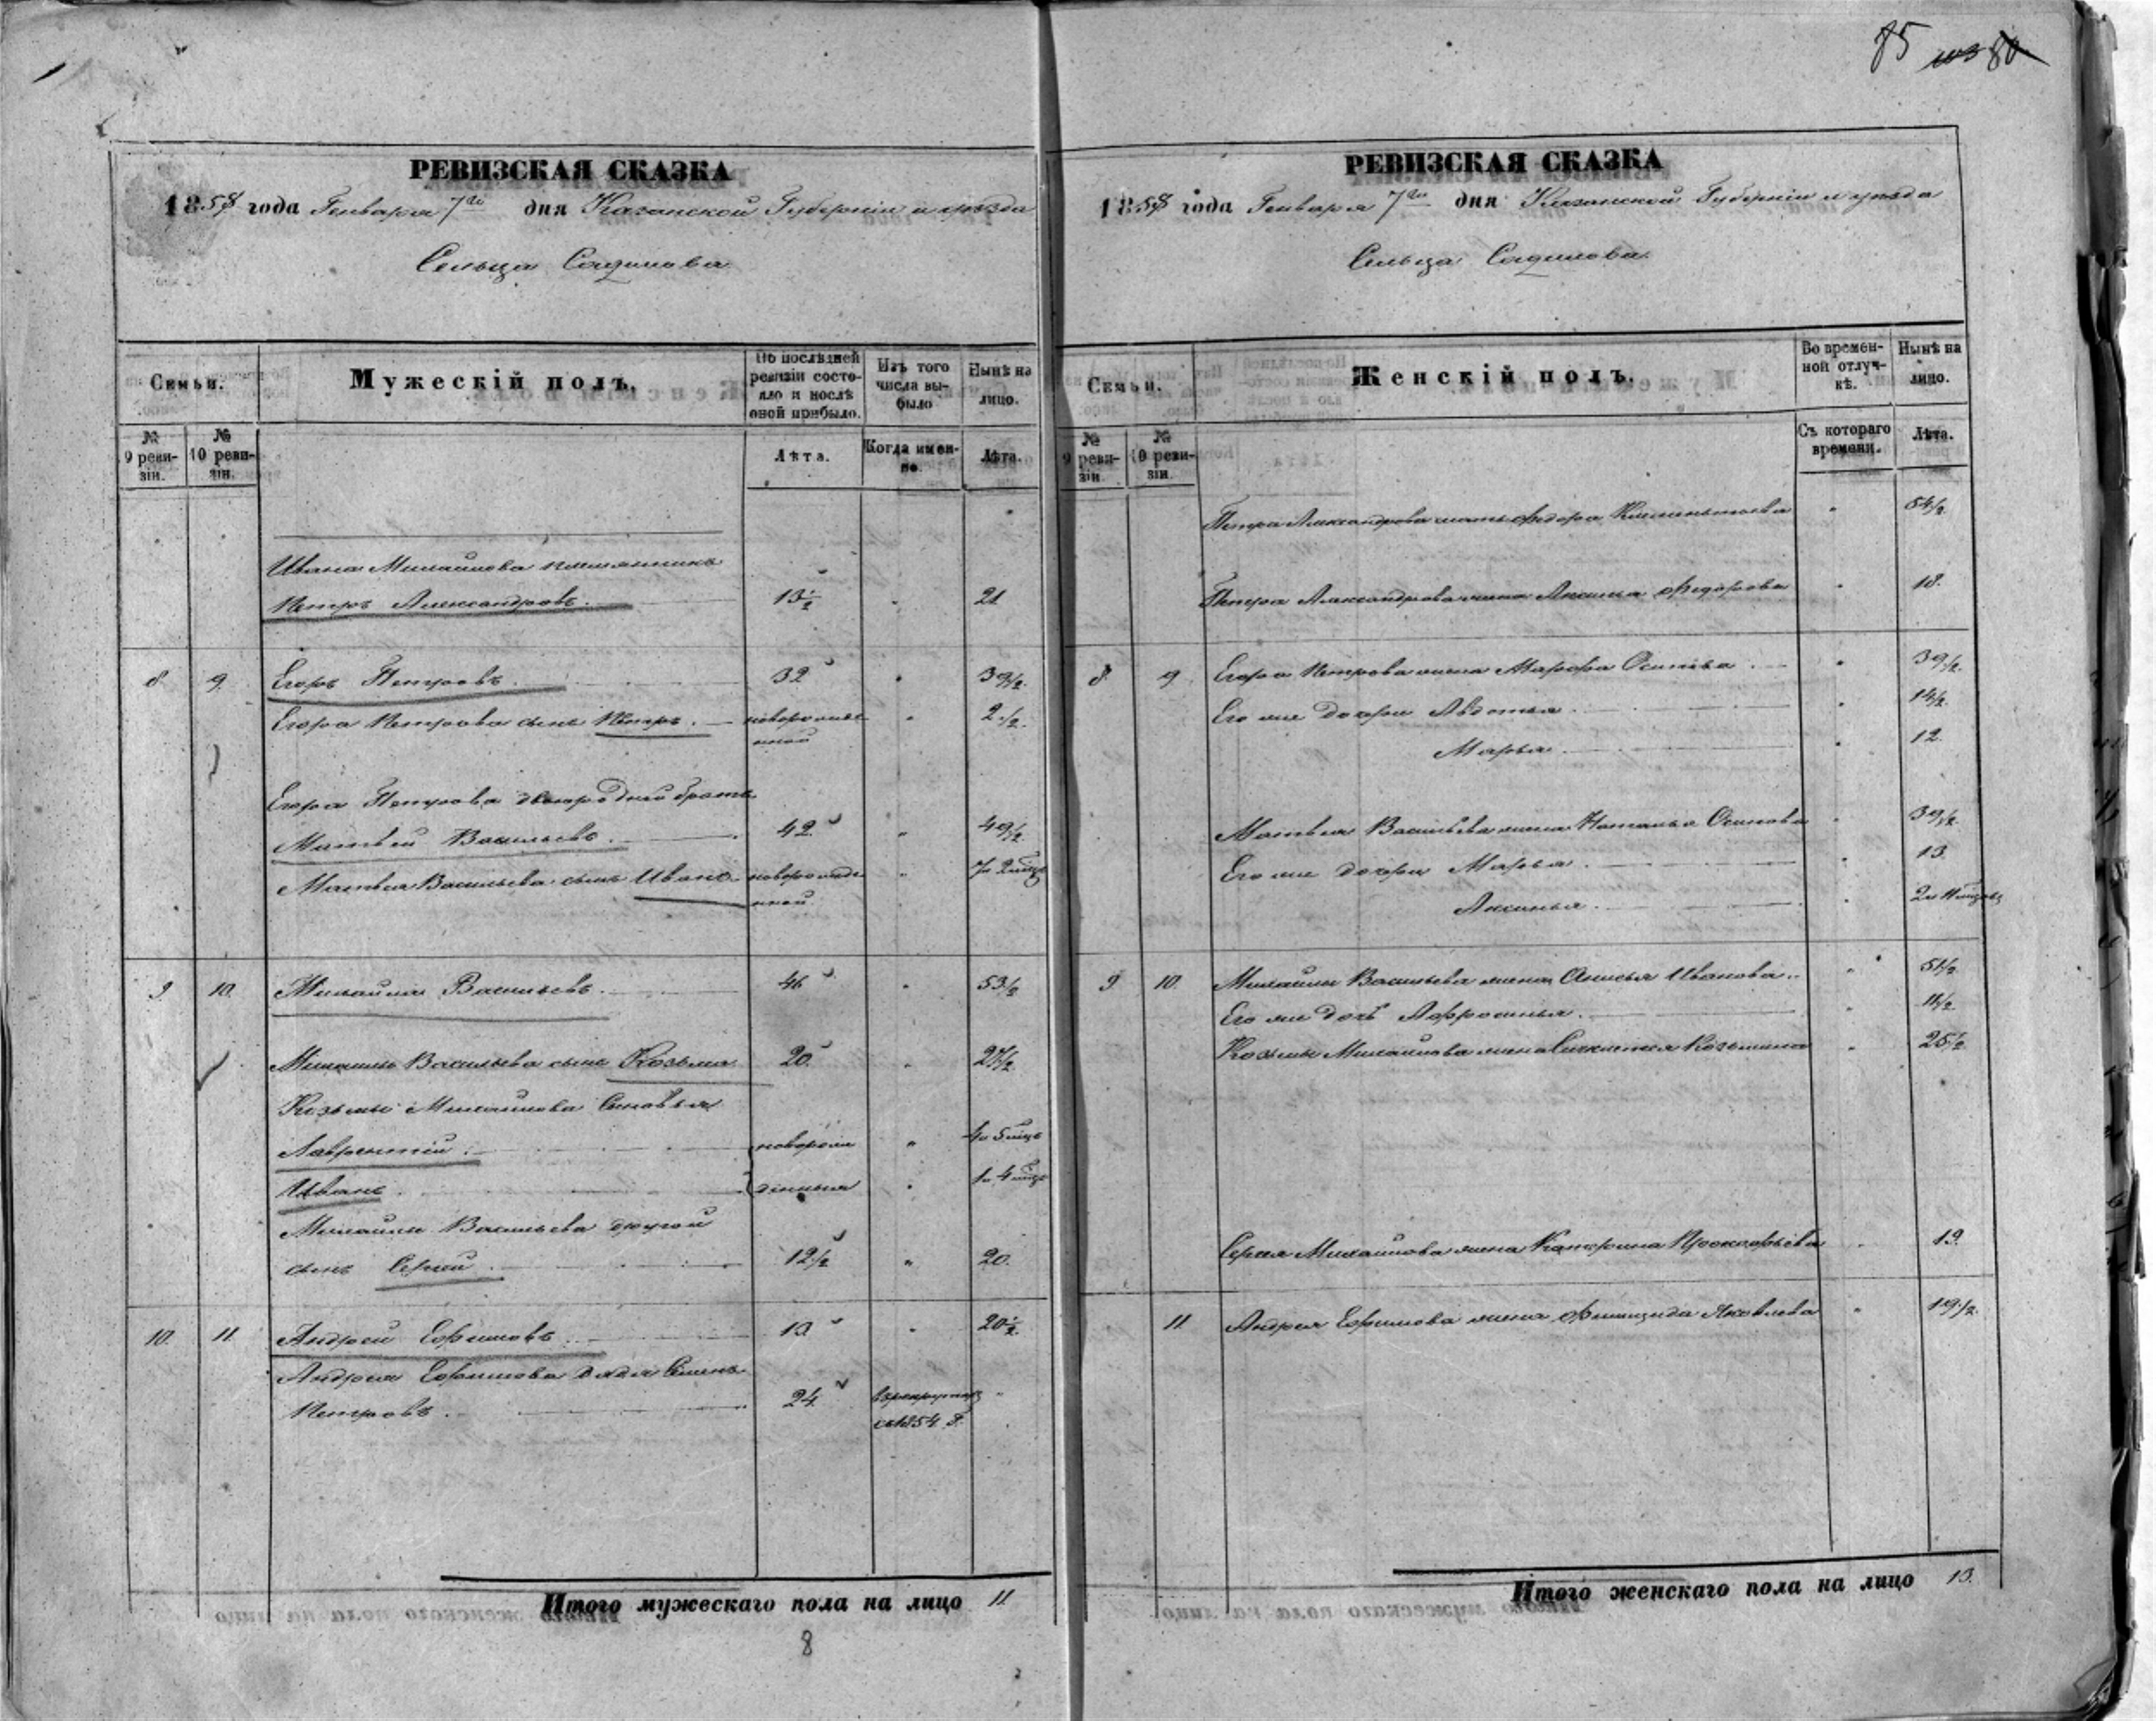 85
РЕВИЗСКАЯ СКАЗКА
1858 года Генваря 7го дня Казанской Губерніи и уѣзда
Сельца
Семьи.
Мужескій полъ.
По послѣдней ревизіи состояло и послѣ оной прибыло.
Изъ того числа выбыло
Нынѣ на лицо.
№ 9 ревизіи.
№ 10 ревизіи.
Лѣта.
Когда именно.
Лѣта.
Ивана Михайлова племянникъ
Петръ Александровъ. 13½ " 21
8 9. Егоръ Петровъ. 32 " 39½.
Егора Петрова сынъ Петръ. новорожденной " 2½.
Егора Петрова двоюродной братъ
Матвѣй Васильевъ. 42 " 49½
Матвѣя Васильева сынъ Иванъ новорожденной " 7и 2 мѣс
9. 10. Михайла Васильевъ. 46 " 53½
Михайлы Васильева сынъ Козьма 20. " 27½
Козьмы Михайлова сыновья
Лаврентій. новорож " 4и 5 мѣс
Иванъ. денныя " 1и 4 мѣс
Михайлы Васильева другой
сынъ Сергей. 12½ " 20.
10. 11. Андрей Ефимовъ. 13. " 20½.
Андрея Ефимова дядя Семенъ
Петровъ. 24. въ рекруты въ 1854 г. "
Итого мужескаго пола на лицо 11.
8
РЕВИЗСКАЯ СКАЗКА
1858 года Генваря 7го дня Казанской Губерніи и уѣзда
Сельца
Семьи.
Женскій полъ.
Во временной отлучкѣ.
Нынѣ на лицо.
№ 9 ревизіи.
№ 10 ревизіи.
Съ котораго времени.
Лѣта.
Петра Александрова мать Федора Климентьева " 54½
Петра Александрова жена Аксинья Федорова " 18.
8. 9. Егора Петрова жена Марфа Осипова. " 39½.
Его же дочери Авдотья. " 14½.
Марья. " 12.
Матвѣя Васильева жена Наталья Осипова " 39½.
Его же дочери Марья. " 13.
Аксинья. " 2и 11 мѣсяцовъ
9. 10. Михайлы Васильева жена Анисья Иванова. " 51½
Его же дочь Афросинья. " 11½
Козьмы Михайлова жена Козьмина " 25½
Сергея Михайлова жена Катерина Прокофьева " 19.
11 Андрея Ефимова жена Яковлева " 19½.
Итого женскаго пола на лицо 13.